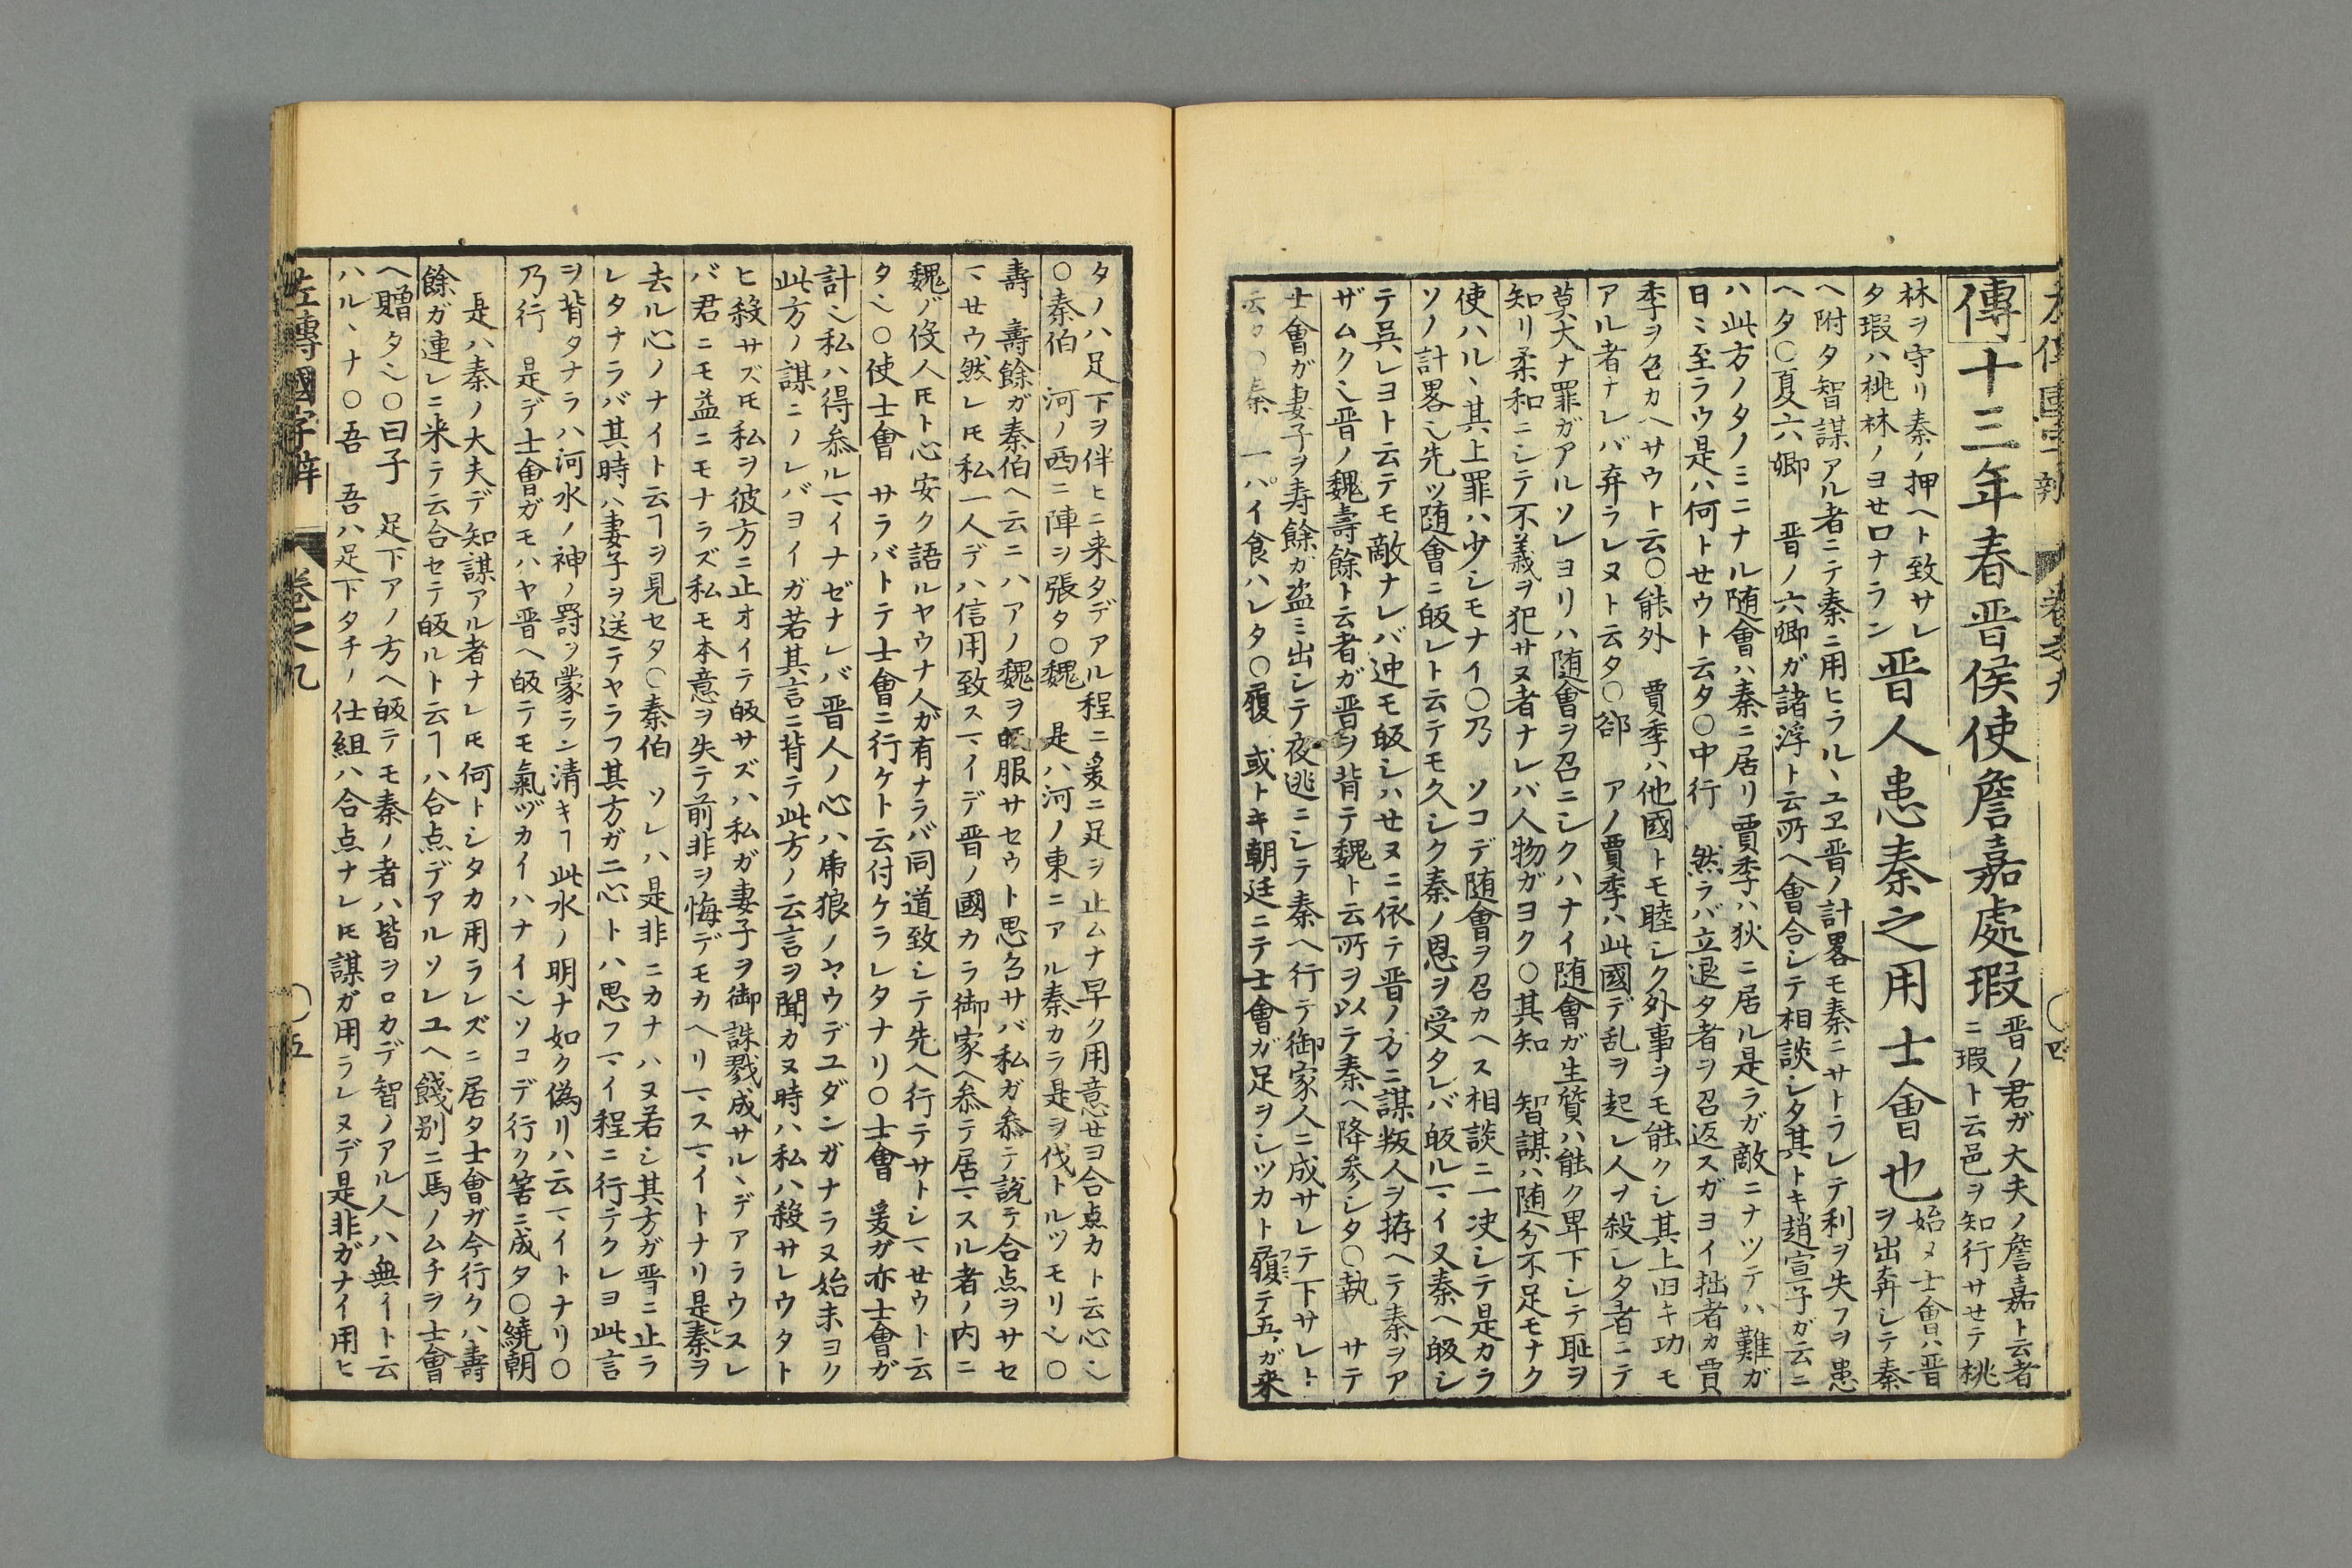 左傳國字辨 卷之九 〇四
傳十三年春晋侯使詹嘉處瑕
晋ノ君ガ大夫ノ詹嘉ト云者
ニ瑕ト云邑ヲ知行サセテ桃
林ヲ守リ秦ノ押ヘト致サレ
タ瑕ハ桃林ノヨセ口ナラン
晋人患秦之用士會也
始メ士會ハ晋
ヲ出奔シテ秦
ヘ附タ智謀アル者ニテ秦ニ用ヒラルヽユヱ晋ノ計畧モ秦ニサトラレテ利ヲ失フヲ患
ヘタ〇夏六卿 晋ノ六卿ガ諸浮ト云所ヘ會合シテ相談シタ其トキ趙宣子ガ云ニ
ハ此方ノタノミニナル随會ハ秦ニ居リ賈季ハ狄ニ居ル是ラガ敵ニナツテハ難ガ
日ニ至ラウ是ハ何トせウト云タ〇中行 然ラバ立退タ者ヲ召返スガヨイ拙者カ賈
季ヲ召カヘサウト云〇能外 賈季ハ他國トモ睦シク外事ヲモ能クシ其上旧キ功モ
アル者ナレバ弃ラレヌト云タ〇郤 アノ賈季ハ此國デ乱ヲ起レ人ヲ殺シタ者ニテ
莫大ナ罪ガアルソレヨリハ随會ヲ召ニシクハナイ随會ガ生質ハ能ク卑下シテ耻ヲ
知リ柔和ニシテ不義ヲ犯サヌ者ナレバ人物ガヨク〇其知 智謀ハ随分不足モナク
使ハルヽ其上罪ハ少シモナイ〇乃 ソコデ随會ヲ召カヘス相談ニ一决シテ是カラ
ソノ計畧〆先ツ随會ニ皈レト云テモ久シク秦ノ恩ヲ受タレバ皈ルマイ又秦ヘ皈シ
テ呉レヨト云テモ敵ナレバ迚モ皈シハせヌニ依テ晋ノ方ニ謀叛人ヲ拵ヘテ秦ヲア
ザムク〆晋ノ魏壽餘ト云者ガ晋ヲ背テ魏ト云所ヲ以テ秦ヘ降参シタ〇執 サテ
士會ガ妻子ヲ寿餘ガ盗ミ出シテ夜逃ニシテ秦ヘ行テ御家人ニ成サレテ下サレト
云タ〇秦 一パイ食ハレタ〇履 或トキ朝廷ニテ士會ガ足ヲシツカト履テ五ヽガ来
タノハ足下ヲ伴ヒニ来タデアル程ニ爰ニ足ヲ止ムナ早ク用意せヨ合点カト云心〆
〇秦伯 河ノ西ニ陣ヲ張タ〇魏 是ハ河ノ東ニアル秦カラ是ヲ伐トルツモリ〆〇
壽 壽餘ガ秦伯ヘ云ニハアノ魏ヲ皈服サセウト思召サバ私ガ参テ説テ合点ヲサセ
マせウ然レ𪜈私一人デハ信用致スマイデ晋ノ國カラ御家ヘ参テ居マスル者ノ内ニ
魏ノ役人𪜈ト心安ク語ルヤウナ人ガ有ナラバ同道致シテ先ヘ行テサトシマせウト云
タ〆〇使士會 サラバトテ士會ニ行ケト云付ケラレタナリ〇士會 爰ガ亦士會ガ
計〆私ハ得参ルマイナゼナレバ晋人ノ心ハ乕狼ノヤウデユダンガナラヌ始末ヨク
此方ノ謀ニノレバヨイガ若其言ニ背テ此方ノ云言ヲ聞カヌ時ハ私ハ殺サレウタト
ヒ殺サズ𪜈私ヲ彼方ニ止オイテ皈サズハ私ガ妻子ヲ御誅戮成サルヽデアラウスレ
バ君ニモ益ニモナラズ私モ本意ヲ失テ前非ヲ悔デモカヘリマスマイトナリ是秦ヲ
去ル心ノナイト云ヿヲ見セタ〇秦伯 ソレハ是非ニカナハヌ若シ其方ガ晋ニ止ラ
レタナラバ其時ハ妻子ヲ送テヤラフ其方ガ二心トハ思フマイ程ニ行テクレヨ此言
ヲ背タナラハ河水ノ神ノ罸ヲ蒙ラン清キヿ此水ノ明ナ如ク偽リハ云マイトナリ〇
乃行 是デ士會ガモハヤ晋ヘ皈テモ氣ヅカイハナイ〆ソコデ行ク筈ニ成タ〇繞朝
是ハ秦ノ大夫デ知謀アル者ナレ𪜈何トシタカ用ラレズニ居タ士會ガ今行クハ壽
餘ガ連レニ来テ云合セテ皈ルト云ヿハ合点デアルソレユヘ餞別ニ馬ノムチヲ士會
ヘ贈タ〆〇曰子 足下アノ方ヘ皈テモ秦ノ者ハ皆ヲロカデ智ノアル人ハ無イト云
ハルヽナ〇吾 吾ハ足下タチノ仕組ハ合点ナレ𪜈謀ガ用ラレヌデ是非ガナイ用ヒ
左傳國字辨 卷之九 〇五